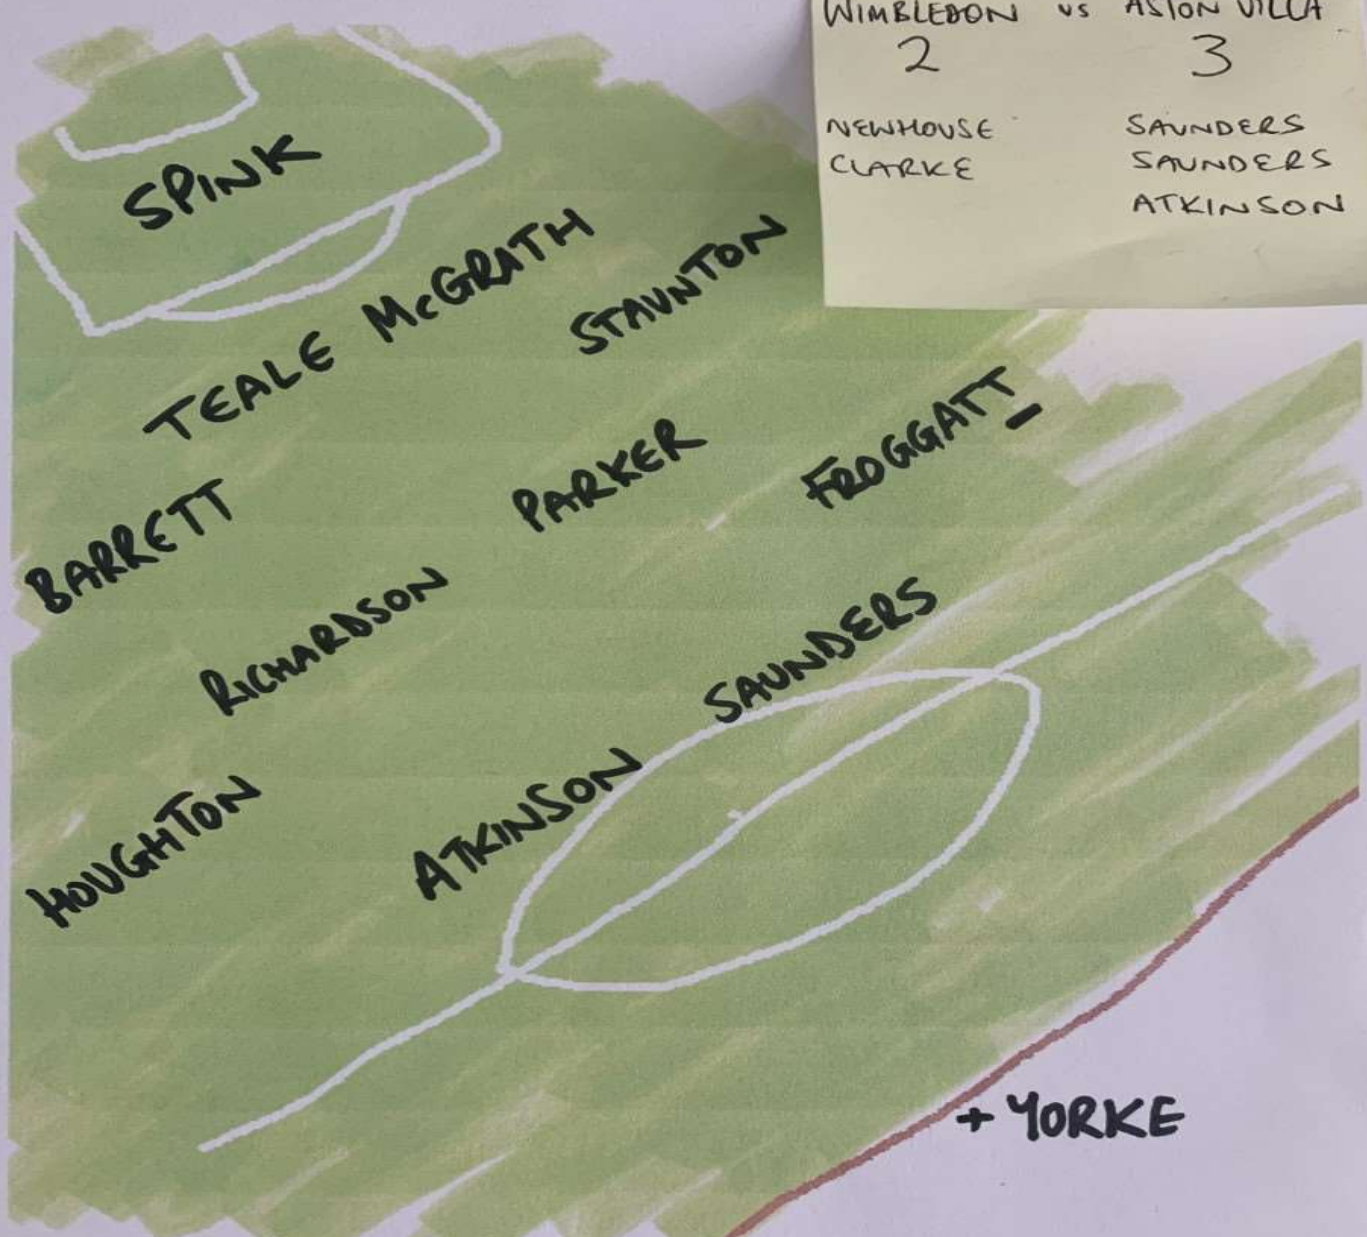 WIMBLEDON vs ASTON VILLA
2 3
NEWHOUSE SAUNDERS
CLARKE SAUNDERS
ATKINSON
SPINK
TEALE McGRATH
STAUNTON
BARRETT
PARKER
FROGGATT
RICHARDSON
SAUNDERS
HOUGHTON
ATKINSON
+ YORKE